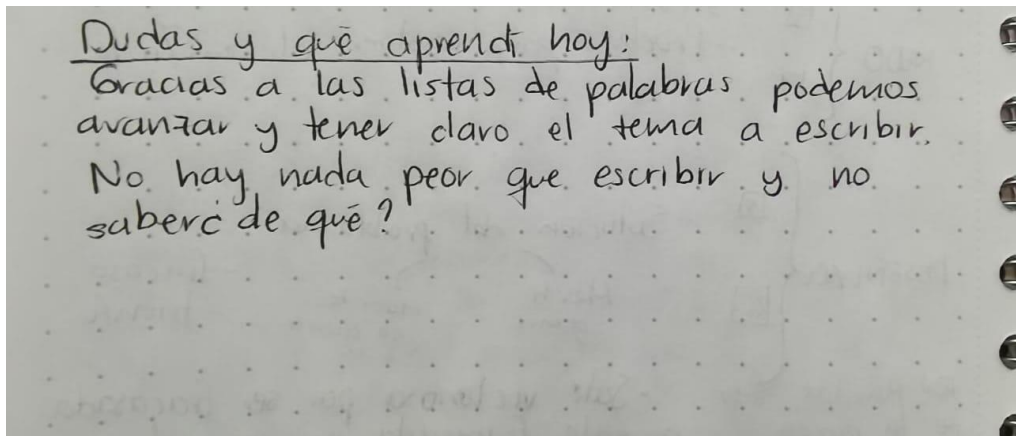 Dudas y qué aprendí hoy:
Gracias a las listas de palabras podemos
avanzar y tener claro el tema a escribir.
No hay nada peor que escribir y no
saber¿ de qué?